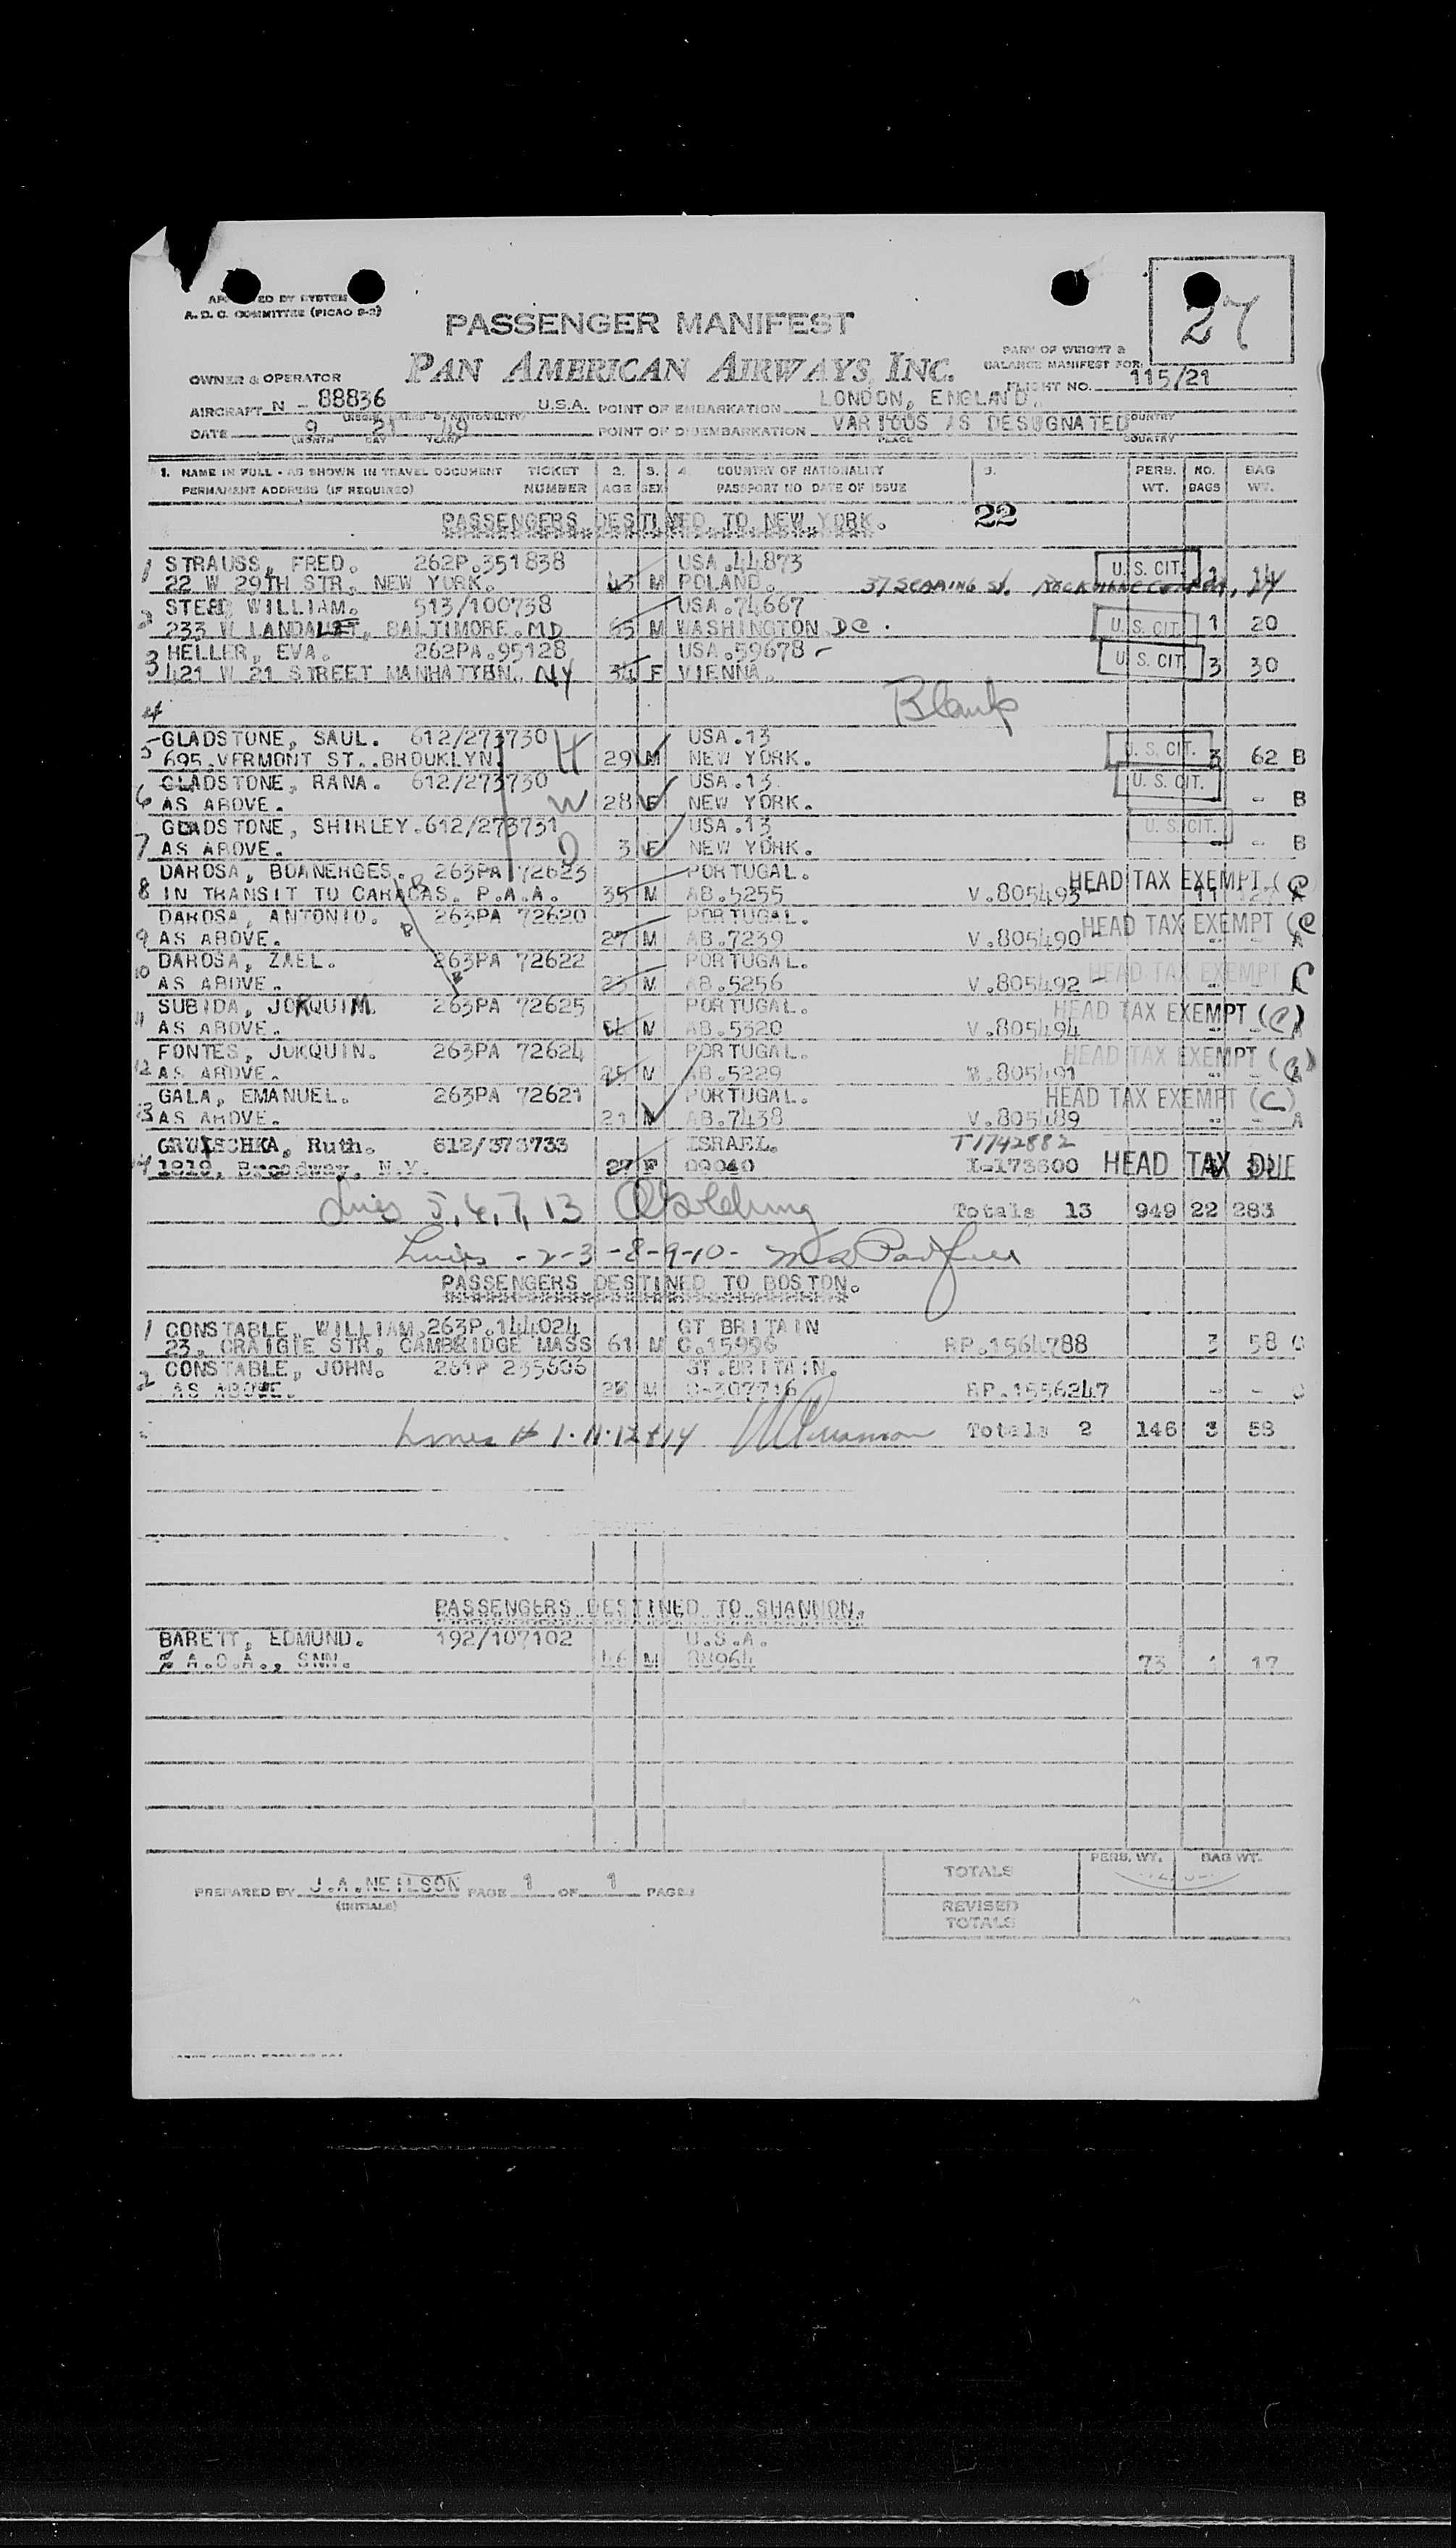 A. D. C. COMMITTEE (PICAO 9-2)
27
PASSENGER MANIFEST
PAN AMERICAN AIRWAYS, INC.
PART OF WEIGHT &
BALANCE MANIFEST FOR
FLIGHT NO. 115/21
OWNER & OPERATOR
AIRCRAFT N - 88836 U.S.A. POINT OF EMBARKATION LONDON, ENGLAND.
DATE 9 21 49 POINT OF DISEMBARKATION VARIOUS AS DESIGNATED COUNTRY
(MONTH DAY YEAR) PLACE COUNTRY
1. NAME IN FULL - AS SHOWN IN TRAVEL DOCUMENT TICKET 2. 3. 4. COUNTRY OF NATIONALITY 5. PERS. NO. BAG
PERMANENT ADDRESS (IF REQUIRED) NUMBER AGE SEX PASSPORT NO DATE OF ISSUE WT. BAGS WT.
PASSENGERS DESTINED TO NEW YORK. 22
1 STRAUSS, FRED. 262P.351838 USA.44873 U. S. CIT.
22 W 29TH STR, NEW YORK. 43 M POLAND. 1 14
2 WILLIAM. 513/100738 USA.74667
233 W BALTIMORE. MD 65 M WASHINGTON DC. U. S. CIT. 1 20
3 HELLER, EVA. 262PA.95128 USA.59678 -
421 W 21 STREET MANHATTEN. NY 34 F VIENNA. U. S. CIT. 3 30
4 Blank
5 GLADSTONE, SAUL. 612/273730 H USA.13
695 VERMONT ST..BROOKLYN. 29 M NEW YORK. U. S. CIT. 3 62 B
6 GLADSTONE, RANA. 612/273730 USA.13
AS ABOVE. W 28 F NEW YORK. U. S. CIT. - - B
7 GLADSTONE, SHIRLEY. 612/273731 USA.13
AS ABOVE. D 3 F NEW YORK. U. S. CIT. - - B
8 DAROSA, BOANERGES. 263PA 72623 PORTUGAL. HEAD TAX EXEMPT (C)
IN TRANSIT TO CARACAS. P.A.A. 35 M AB.5255 V.805493 11
9 DAROSA, ANTONIO. 263PA 72620 PORTUGAL. HEAD TAX EXEMPT (C
AS ABOVE. 27 M AB.7239 V.805490 - - A
10 DAROSA, ZAEL. 263PA 72622 PORTUGAL. HEAD TAX EXEMPT
AS ABOVE. 23 M AB.5256 V.805492 -
11 SUBIDA, JOKQUIM. 263PA 72625 PORTUGAL. HEAD TAX EXEMPT (C)
AS ABOVE. M AB.5320 V.805494
12 FONTES, JOKQUIN. 263PA 72624 PORTUGAL. HEAD TAX EXEMPT (C)
AS ABOVE. 25 M AB.5229 V.805491
13 GALA, EMANUEL. 263PA 72621 PORTUGAL. HEAD TAX EXEMPT (C)
AS ABOVE. 21 M AB.7438 V.805489 - - A
14 Ruth. 612/373733 ISRAEL. T1742882
1819, Broadway, N.Y. 27 F 09040 I-173600 HEAD TAX DUE
Lines 5, 6, 7, 13 Totals 13 949 22 283
Lines - 2-3-8-9-10-
PASSENGERS DESTINED TO BOSTON.
1 CONSTABLE, WILLIAM. 263P.144024 GT BRITAIN
23. CRAIGIE STR. CAMBRIDGE MASS 61 M C.15996 RP.1564788 3 58 C
2 CONSTABLE, JOHN. 261P 235606 GT.BRITAIN.
AS ABOVE. M C-307716 RP.1556247 - -
Lines # 1.11.12 & 14 Totals 2 146 3 58
PASSENGERS DESTINED TO SHANNON.
BARETT, EDMUND. 192/107102 U.S.A.
% A.O.A., SNN. 46 M 88964 73 1 17
PREPARED BY J.A.NEILSON PAGE 1 OF 1 PAGES
(INITIALS)
TOTALS PERS. WT. BAG WT.
REVISED
TOTALS